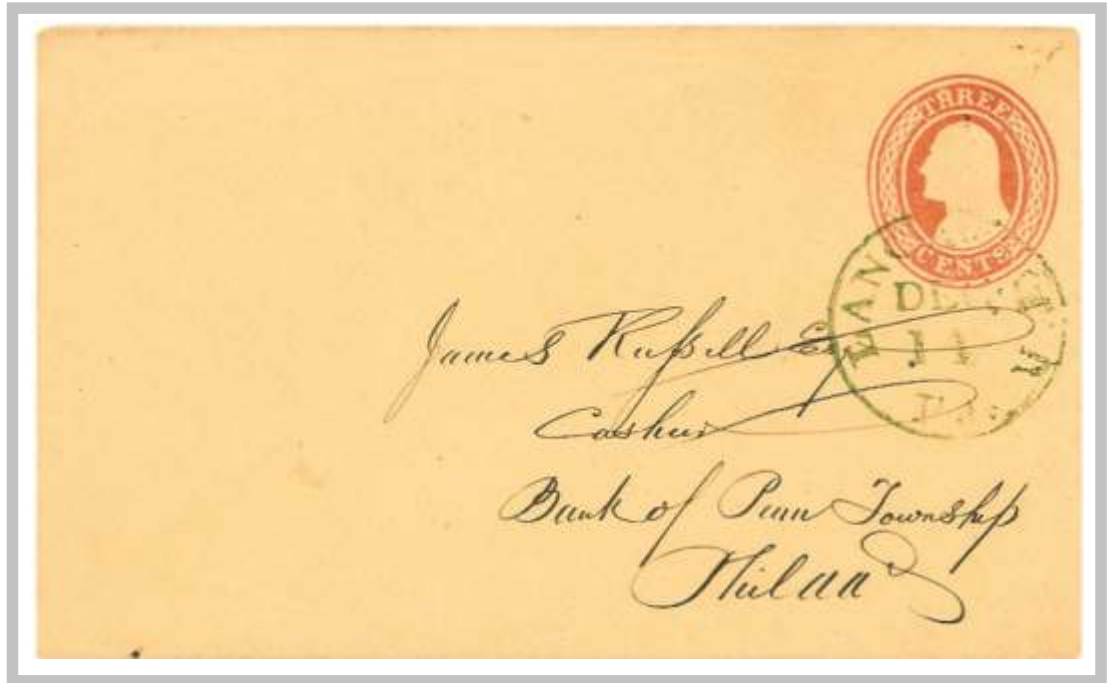 THREE
CENTS
DEC
James Russell Esq
Cashier
Bank of Penn Township
Philad'a